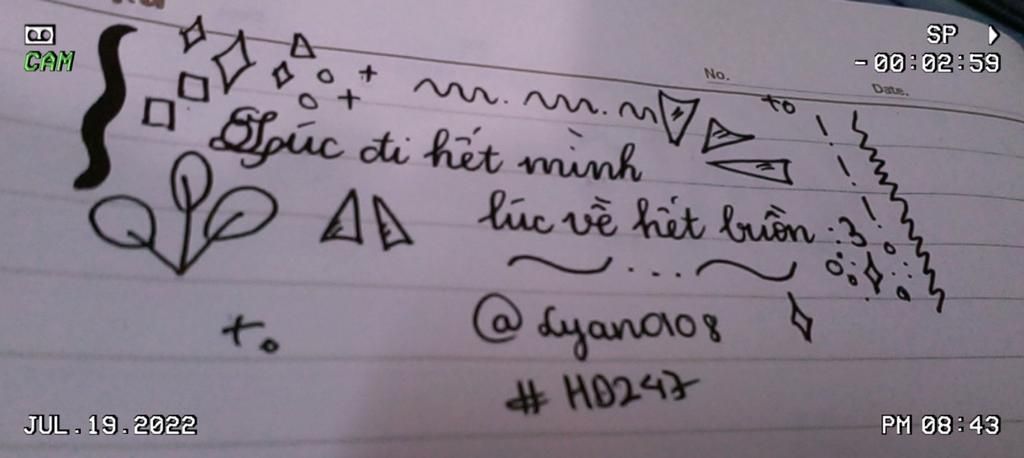 CAM
SP
-00:02:59
No.
Date.
Lúc đi hết mình
lúc về hết buồn :3
@dyan0108
#HD247
JUL.19.2022
PM 08:43